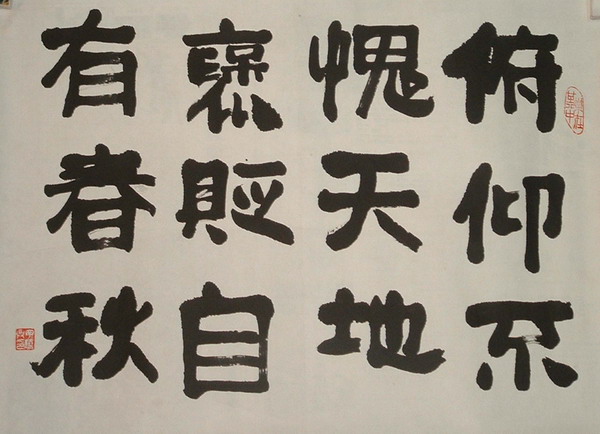 俯仰不
愧天地
褒貶自
有春秋